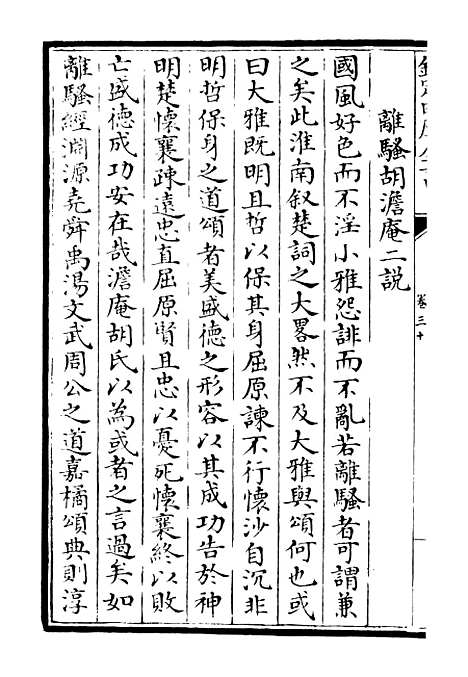 欽定四庫全書
卷三十
離騷胡澹庵二説
國風好色而不淫小雅怨誹而不亂若離騷者可謂兼
之矣此淮南叙楚詞之大畧然不及大雅與頌何也或
曰大雅既明且哲以保其身屈原諫不行懷沙自沉非
明哲保身之道頌者美盛德之形容以其成功告於神
明楚懷襄疎遠忠直屈原賢且忠以憂死懷襄終以敗
亡盛德成功安在哉澹庵胡氏以為或者之言過矣如
離騷經淵源堯舜禹湯文武周公之道嘉橘頌典則淳